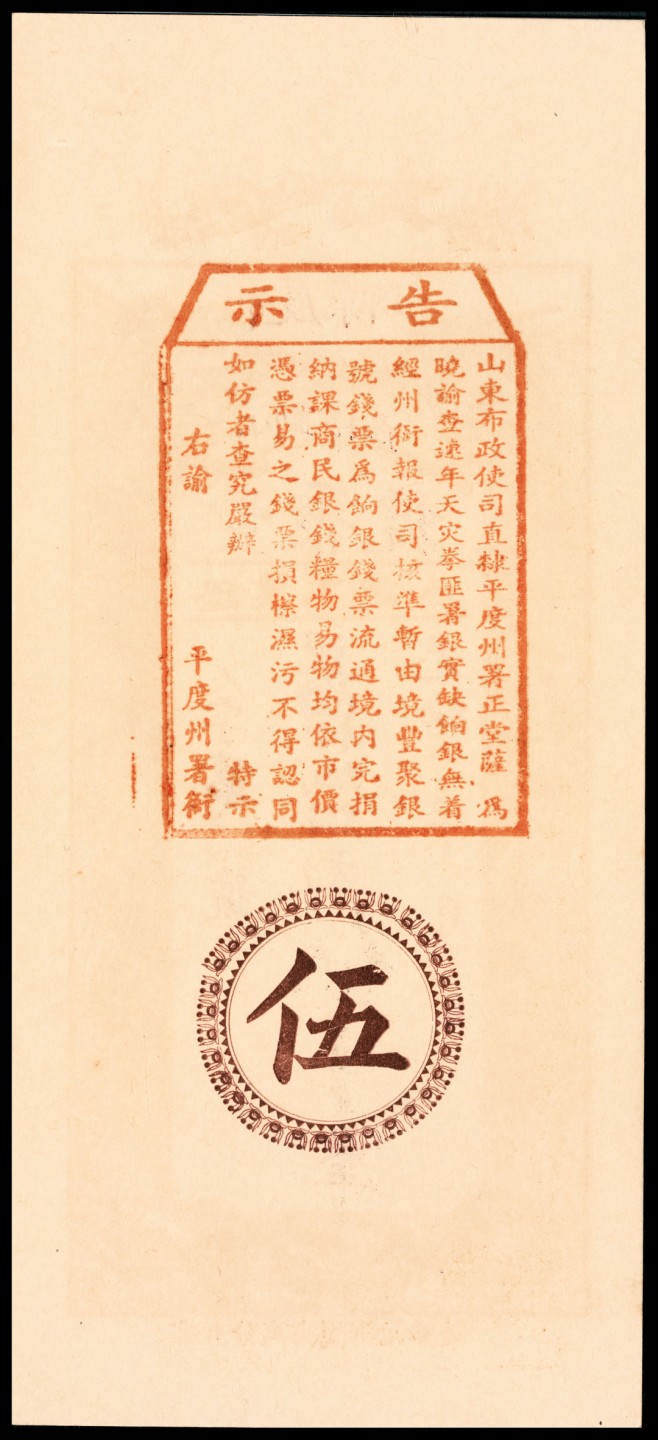 告示
山東布政使司直隸平度州署正堂薩為
曉諭查遠年天灾拳匪署銀實缺餉銀無着
經州衙報使司核準暫由境豐聚銀
號錢票為餉銀錢票流通境内完捐
納課商民銀錢糧物易物均依市價
憑票易之錢票損檫濕污不得認同
如仿者查究嚴辦 特示
右諭 平度州署衙
伍